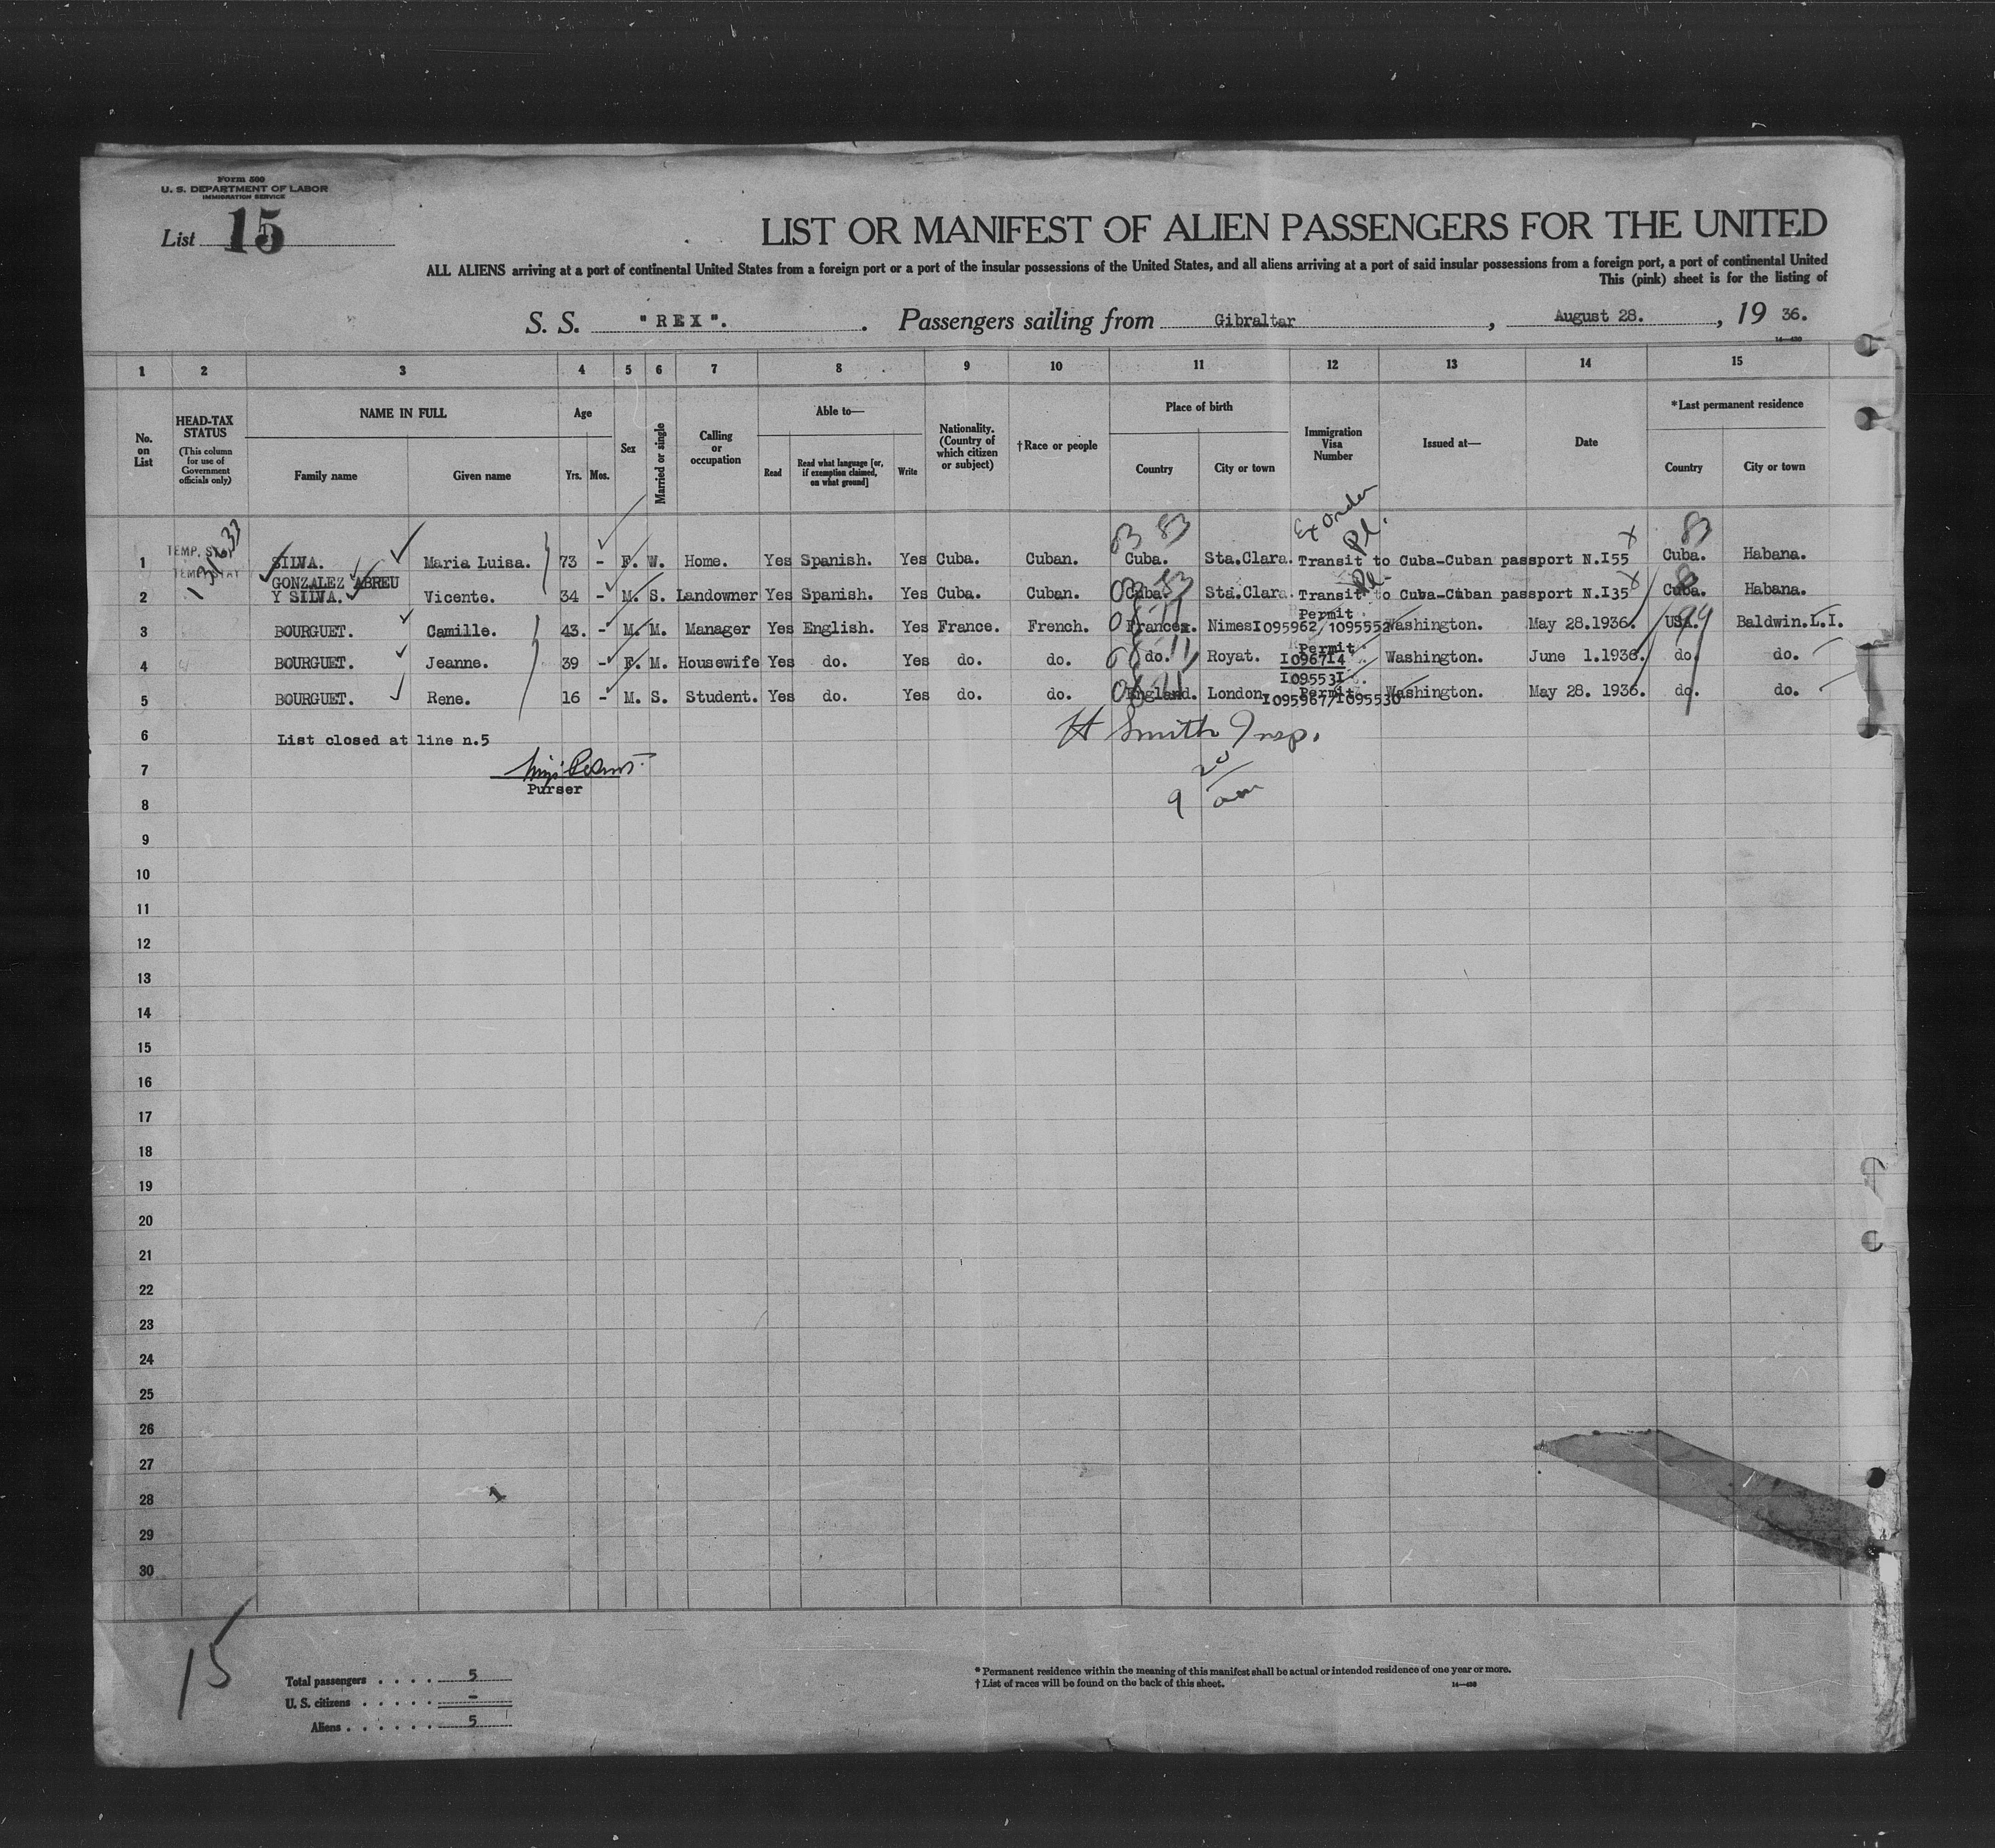 Form 500
U. S. DEPARTMENT OF LABOR
IMMIGRATION SERVICE
List 15
LIST OR MANIFEST OF ALIEN PASSENGERS FOR THE UNITED
ALL ALIENS arriving at a port of continental United States from a foreign port or a port of the insular possessions of the United States, and all aliens arriving at a port of said insular possessions from a foreign port, a port of continental United
This (pink) sheet is for the listing of
S. S. "REX". . Passengers sailing from Gibraltar, August 28., 19 36.
1 2 3 4 5 6 7 8 9 10 11 12 13 14 15
No. on List
HEAD-TAX STATUS (This column for use of Government officials only)
NAME IN FULL
Family name Given name
Age
Yrs. Mos.
Sex
Married or single
Calling or occupation
Able to—
Read Read what language [or, if exemption claimed, on what ground] Write
Nationality. (Country of which citizen or subject)
†Race or people
Place of birth
Country City or town
Immigration Visa Number
Issued at—
Date
*Last permanent residence
Country City or town
Ex Order
1 SILVA. Maria Luisa. 73 - F. W. Home. Yes Spanish. Yes Cuba. Cuban. Cuba. Sta.Clara. Transit to Cuba-Cuban passport N.I55 Cuba. Habana.
2 GONZALEZ ABREU Y SILVA. Vicente. 34 - M. S. Landowner Yes Spanish. Yes Cuba. Cuban. Cuba. Sta.Clara. Transit to Cuba-Cuban passport N.I35 Cuba. Habana.
3 BOURGUET. Camille. 43. - M. M. Manager Yes English. Yes France. French. France. Nimes Permit I095962/1095552 Washington. May 28.1936. USA. Baldwin.L.I.
4 BOURGUET. Jeanne. 39 - F. M. Housewife Yes do. Yes do. do. do. Royat. Permit I0967I4 I09553I Washington. June 1.1936. do. do.
5 BOURGUET. Rene. 16 - M. S. Student. Yes do. Yes do. do. England. London. Permit. I095967/I095530 Washington. May 28. 1936. do. do.
6 List closed at line n.5
H Smith Insp.
7
Purser
9 20 am
8
9
10
11
12
13
14
15
16
17
18
19
20
21
22
23
24
25
26
27
28
29
30
15
Total passengers . . . . 5
U. S. citizens . . . . . -
Aliens . . . . . . 5
* Permanent residence within the meaning of this manifest shall be actual or intended residence of one year or more.
† List of races will be found on the back of this sheet.